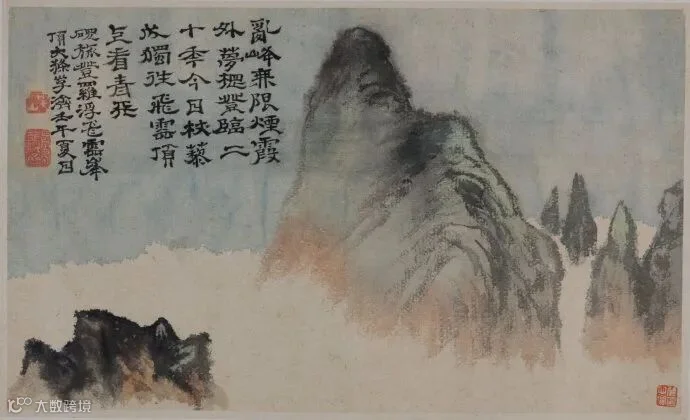 亂峰無限煙霞
外夢想登臨二
十年今日杖藜
獨往飛雲頂
看青
硯旅登羅浮飛雲峯
頂大滌子濟壬午夏日
大数跨境